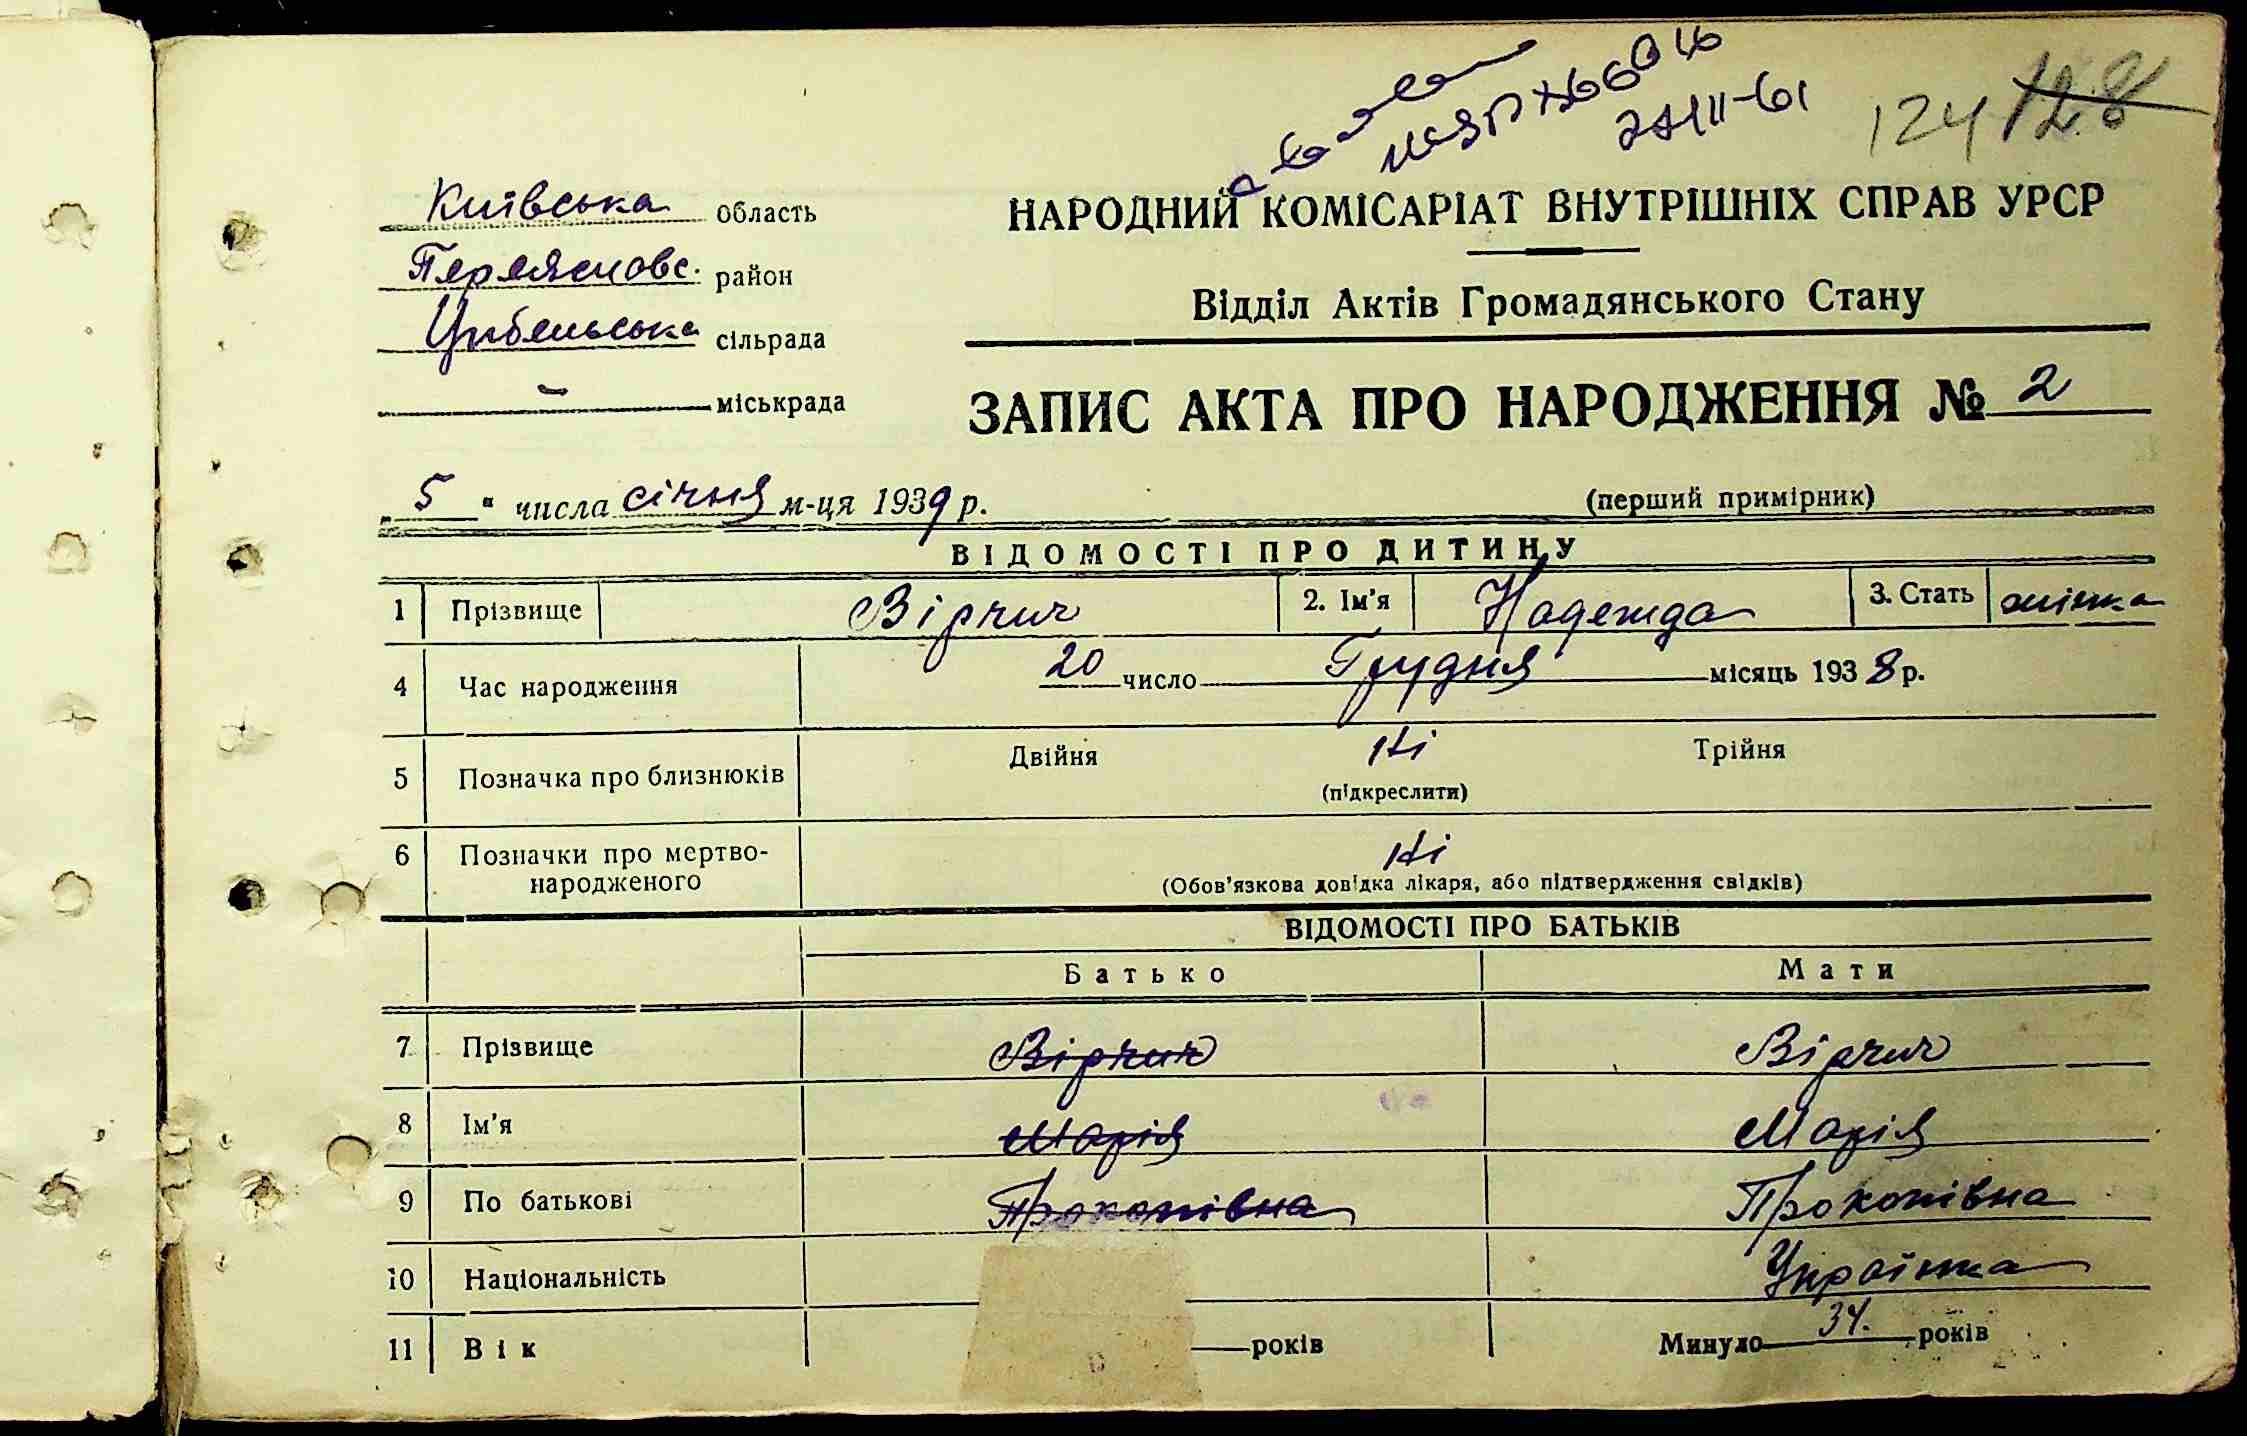 124 128
Київська область
Переяславс. район
Цибельська сільрада
— міськрада
НАРОДНИЙ КОМІСАРІАТ ВНУТРІШНІХ СПРАВ УРСР
Відділ Актів Громадянського Стану
ЗАПИС АКТА ПРО НАРОДЖЕННЯ № 2
„ 5 “ числа січня м-ця 1939 р.
(перший примірник)
ВІДОМОСТІ ПРО ДИТИНУ
1 Прізвище Вірчич 2. Ім'я Надежда 3. Стать жінка
4 Час народження 20 число Грудня місяць 1938 р.
5 Позначка про близнюків Двійня Ні Трійня
(підкреслити)
6 Позначки про мертво-
народженого Ні
(Обов'язкова довідка лікаря, або підтвердження свідків)
ВІДОМОСТІ ПРО БАТЬКІВ
Батько Мати
7 Прізвище Вірчич Вірчич
8 Ім'я Марія Марія
9 По батькові Прокопівна Прокопівна
10 Національність Українка
11 Вік років Минуло 34. років